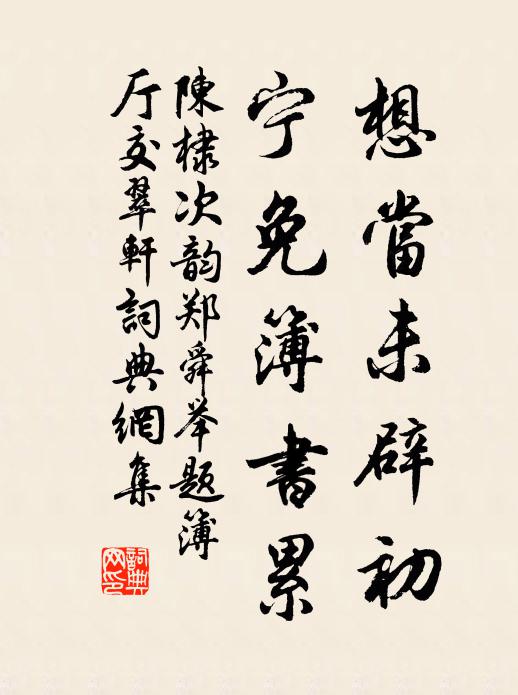 想當未辟初
宁免簿書累
陳棣次韵郑舜举题簿
厅交翠軒詞典網集
詞典網印